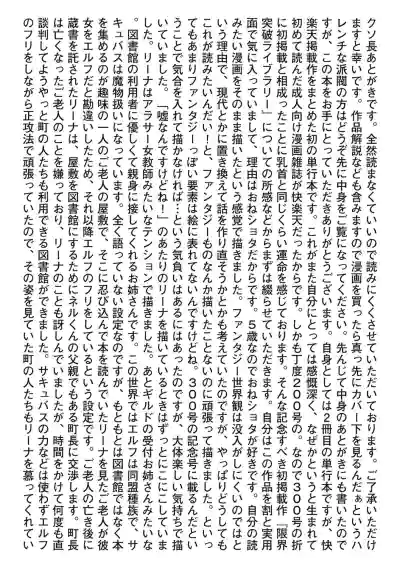 クソ長あとがきです。全然読まなくていいので読みにくくさせていただいております。ご了承いただけ
ますと幸いです。作品解説なども含みますので漫画を買ったら真っ先にカバー下を見るんだぁというハ
レンチな派閥の方はどうぞ先に中身をご覧になってください。先んじて中身のあとがきにも書いたので
すが、この本をお手にとっていただきありがとうございます。自身としては2冊目の単行本ですが、快
楽天掲載作をまとめた初の単行本です。これがまた自分にとっては感慨深く、なぜかというと生まれて
初めて読んだ成人向け漫画雑誌が快楽天だったからです。しかも丁度200号の。なので300号の折
に初掲載と相成ったことに乳首と同じくらい運命を感じております。そんな記念すべき初掲載作『限界
突破ライブラリー』についての所感などからまずは綴らせていただきます。自分はこの作品を割と実用
面で気に入っていまして、理由はおねショタだからです。5歳なのでおねショタが好きです。自分の読
みたい漫画をそのまま描いたという感覚で描きました。ファンタジー世界観は没入がしにくいのではと
いう理由で、現代とかに置き換えて話を作り直そうかとかも考えていたのですが、やっぱりどうしても
これが読みたいんだい!と、ファンタジーものなんか描いたことないのに頑張って描きました。といっ
てもあまりファンタジーっぽい要素は絵に表れてないんですけどね。300号の記念号に載るんだとい
うことで気合を入れて描かなければ…という気負いはあるにはあったのですが、大体楽しい気持ちで描
いていました。「嘘なんですけどね!」のあたりのリーナを描いているときはずっとにこにこしていま
した。リーナはアラサー女教師みたいなテンションで描きました。あとギルドの受付お姉さんみたいな
。図書館の利用者に優しくて親身に接してくれるお姉さんです。この世界ではエルフは同盟種族で、サ
キュバスは魔物扱いになっています。全く語っていない設定なのですが、もともとは図書館ではなく本
を集めるのが趣味の一人のご老人の屋敷で、そこに忍び込んで本を読んでいたリーナを見たご老人が彼
女をエルフだと勘違いしたため、それ以降エルフのフリをしているという設定です。ご老人の亡き後に
蔵書を託されたリーナは、屋敷を図書館にするためにネルくんの父親でもある町長に交渉します。町長
は亡くなったご老人のことを嫌っており、リーナのことも訝しんでいましたが、時間をかけて何度も直
談判してようやっと町の人たちも利用できる図書館ができました。サキュバスの力などは使わずエルフ
のフリをしながら正攻法で頑張っていたので、その姿を見ていた町の人たちもリーナを慕ってくれてい